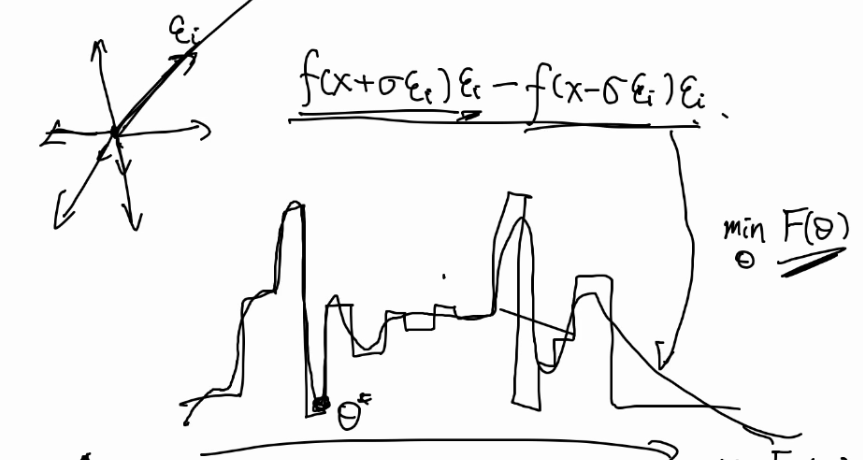 εᵢ
f(x+σεᵢ)εᵢ − f(x−σεᵢ)εᵢ
min F(θ)
θ
θ*